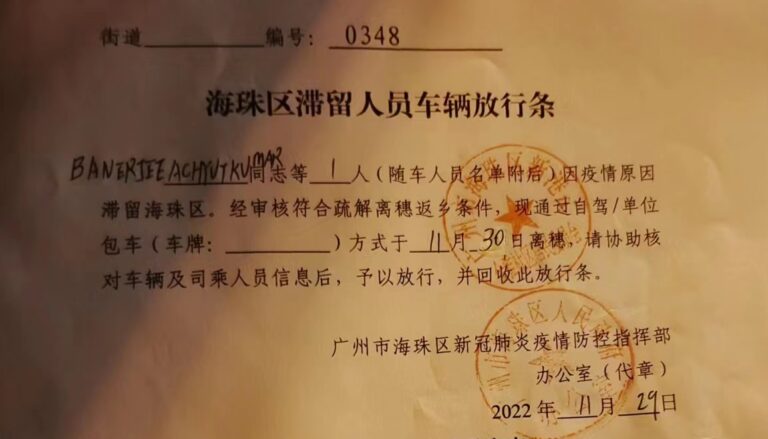 街道__________编号：0348
海珠区滞留人员车辆放行条
BANERJEE ACHYUTKUMAR同志等 1 人（随车人员名单附后）因疫情原因
滞留海珠区。经审核符合疏解离穗返乡条件，现通过自驾/单位
包车（车牌：__________）方式于 11 月 30 日离穗，请协助核
对车辆及司乘人员信息后，予以放行，并回收此放行条。
广州市海珠区新冠肺炎疫情防控指挥部
办公室（代章）
2022 年 11 月 29 日